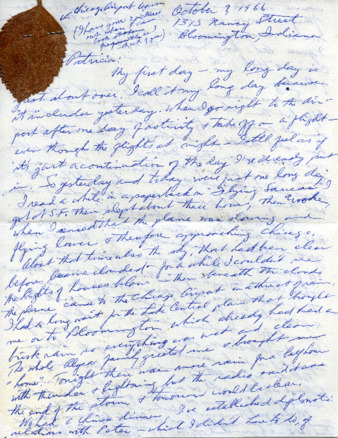 Chicago Airport Upon
October 3, 1966
1313 Nancy Street
Bloomington Indiana
Patricia:
My first day — my long day is
just about over. I call it my long day because
it includes yesterday. When I go right to the air-
port after one day of activity & take off on a flight —
even though the flight's at night — I still feel as if
it's just a continuation of the day I've already put
in. So yesterday and today were just one long day.
I read a while in a paperback on "Flying Saucers"
out of S.F. then slept about three hours, then
when I sensed that the plane was slowing and
flying lower & therefore approaching Chicago,
About that time also the sky that had been clear
before became clouded — for a while I couldn't see
the lights of houses below — then beneath the clouds
the plane came to the Chicago Airport in a threat of rain.
I had a long wait for the Lake Central plane that brought
me on to Bloomington which already had had a
brisk rain so everything was wet and clean.
The whole family greeted me & brought me
"home". Tonight there was more rain for a half hour
with thunder & lightning but the radio said it was
the end of the storm & tomorrow would be clear.
We had a dinner. I've established diplomatic
relations with Peter — which I didn't have to do, of